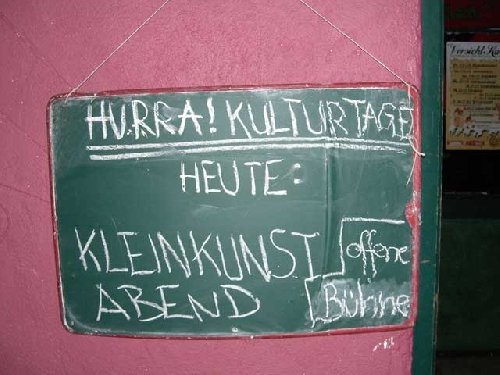 HURRA! KULTURTAGE
HEUTE:
KLEINKUNST
ABEND
offene
Bühne